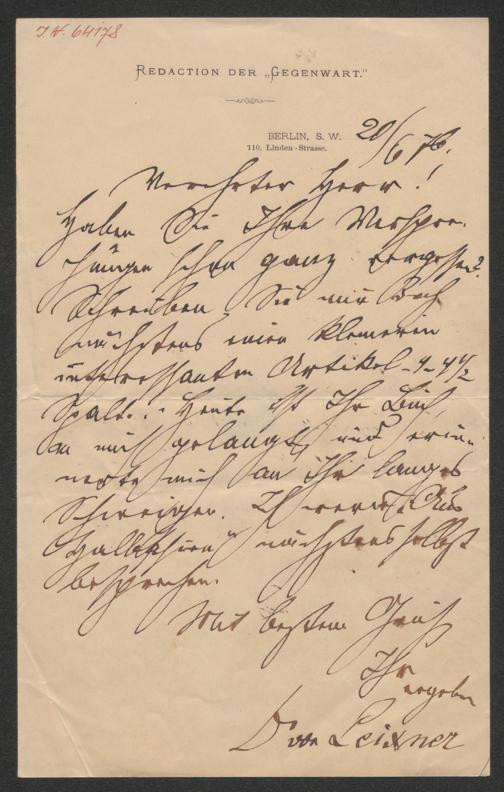 I. N. 64178
REDACTION DER „GEGENWART."
BERLIN, S. W. 20/6 76.
110, Linden-Strasse.
Verehrter Herr!
Haben Sie Ihre Verspre-
chungen schon ganz vergessen?
Schreiben Sie mir doch
nächstens einen kleineren
interessanten Artikel – 4 – 4 1/2
Spalt... Heute ist Ihr Buch
an mich gelangt und erin-
nerte mich an Ihr langes
Schweigen. Ich werde „Aus
Halbasien" nächstens selbst
besprechen.
Mit bestem Gruß
Ihr
ergeben
Dr von Leixner